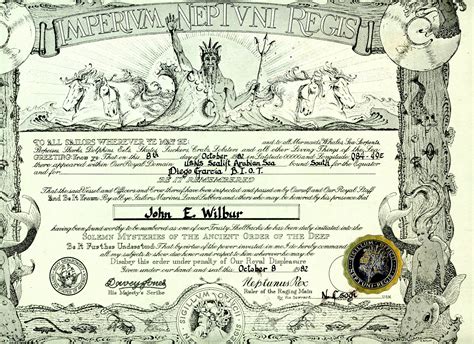 IMPERIVM NEPTVNI REGIS
TO ALL SAILORS WHEREVER YE MAY BE:
and to all Mermaids, Whales, Sea Serpents,
Porpoises, Sharks, Dolphins, Eels, Skates, Suckers, Crabs, Lobsters and all other Living Things of the Sea
GREETING: Know ye: That on this 8th day of October 1982 in Latitude 00000 and Longitude 084-49E
there appeared within Our Royal Domain USNS Sealift Arabian Sea bound South for the Equator
and for Diego Garcia B.I.O.T.
BE IT REMEMBERED
That the said Vessel and Officers and Crew thereof have been inspected and passed on by Ourself and Our Royal Staff
And Be It Known: By all ye Sailors, Marines, Land Lubbers and others who may be honored by his presence that
John E. Wilbur
having been found worthy to be numbered as one of our Trusty Shellbacks he has been duly initiated into the
SOLEMN MYSTERIES OF THE ANCIENT ORDER OF THE DEEP
Be It Further Understood: That by virtue of the power invested in me I do hereby command
all my subjects to show due honor and respect to him wherever he may be
Disobey this order under penalty of Our Royal Displeasure
Given under our hand and seal this October 8 1982
Davey Jones
His Majesty's Scribe
Neptunus Rex
Ruler of the Raging Main
By his Servant
USN
SIGILLVM
NEPTUNI REGIS